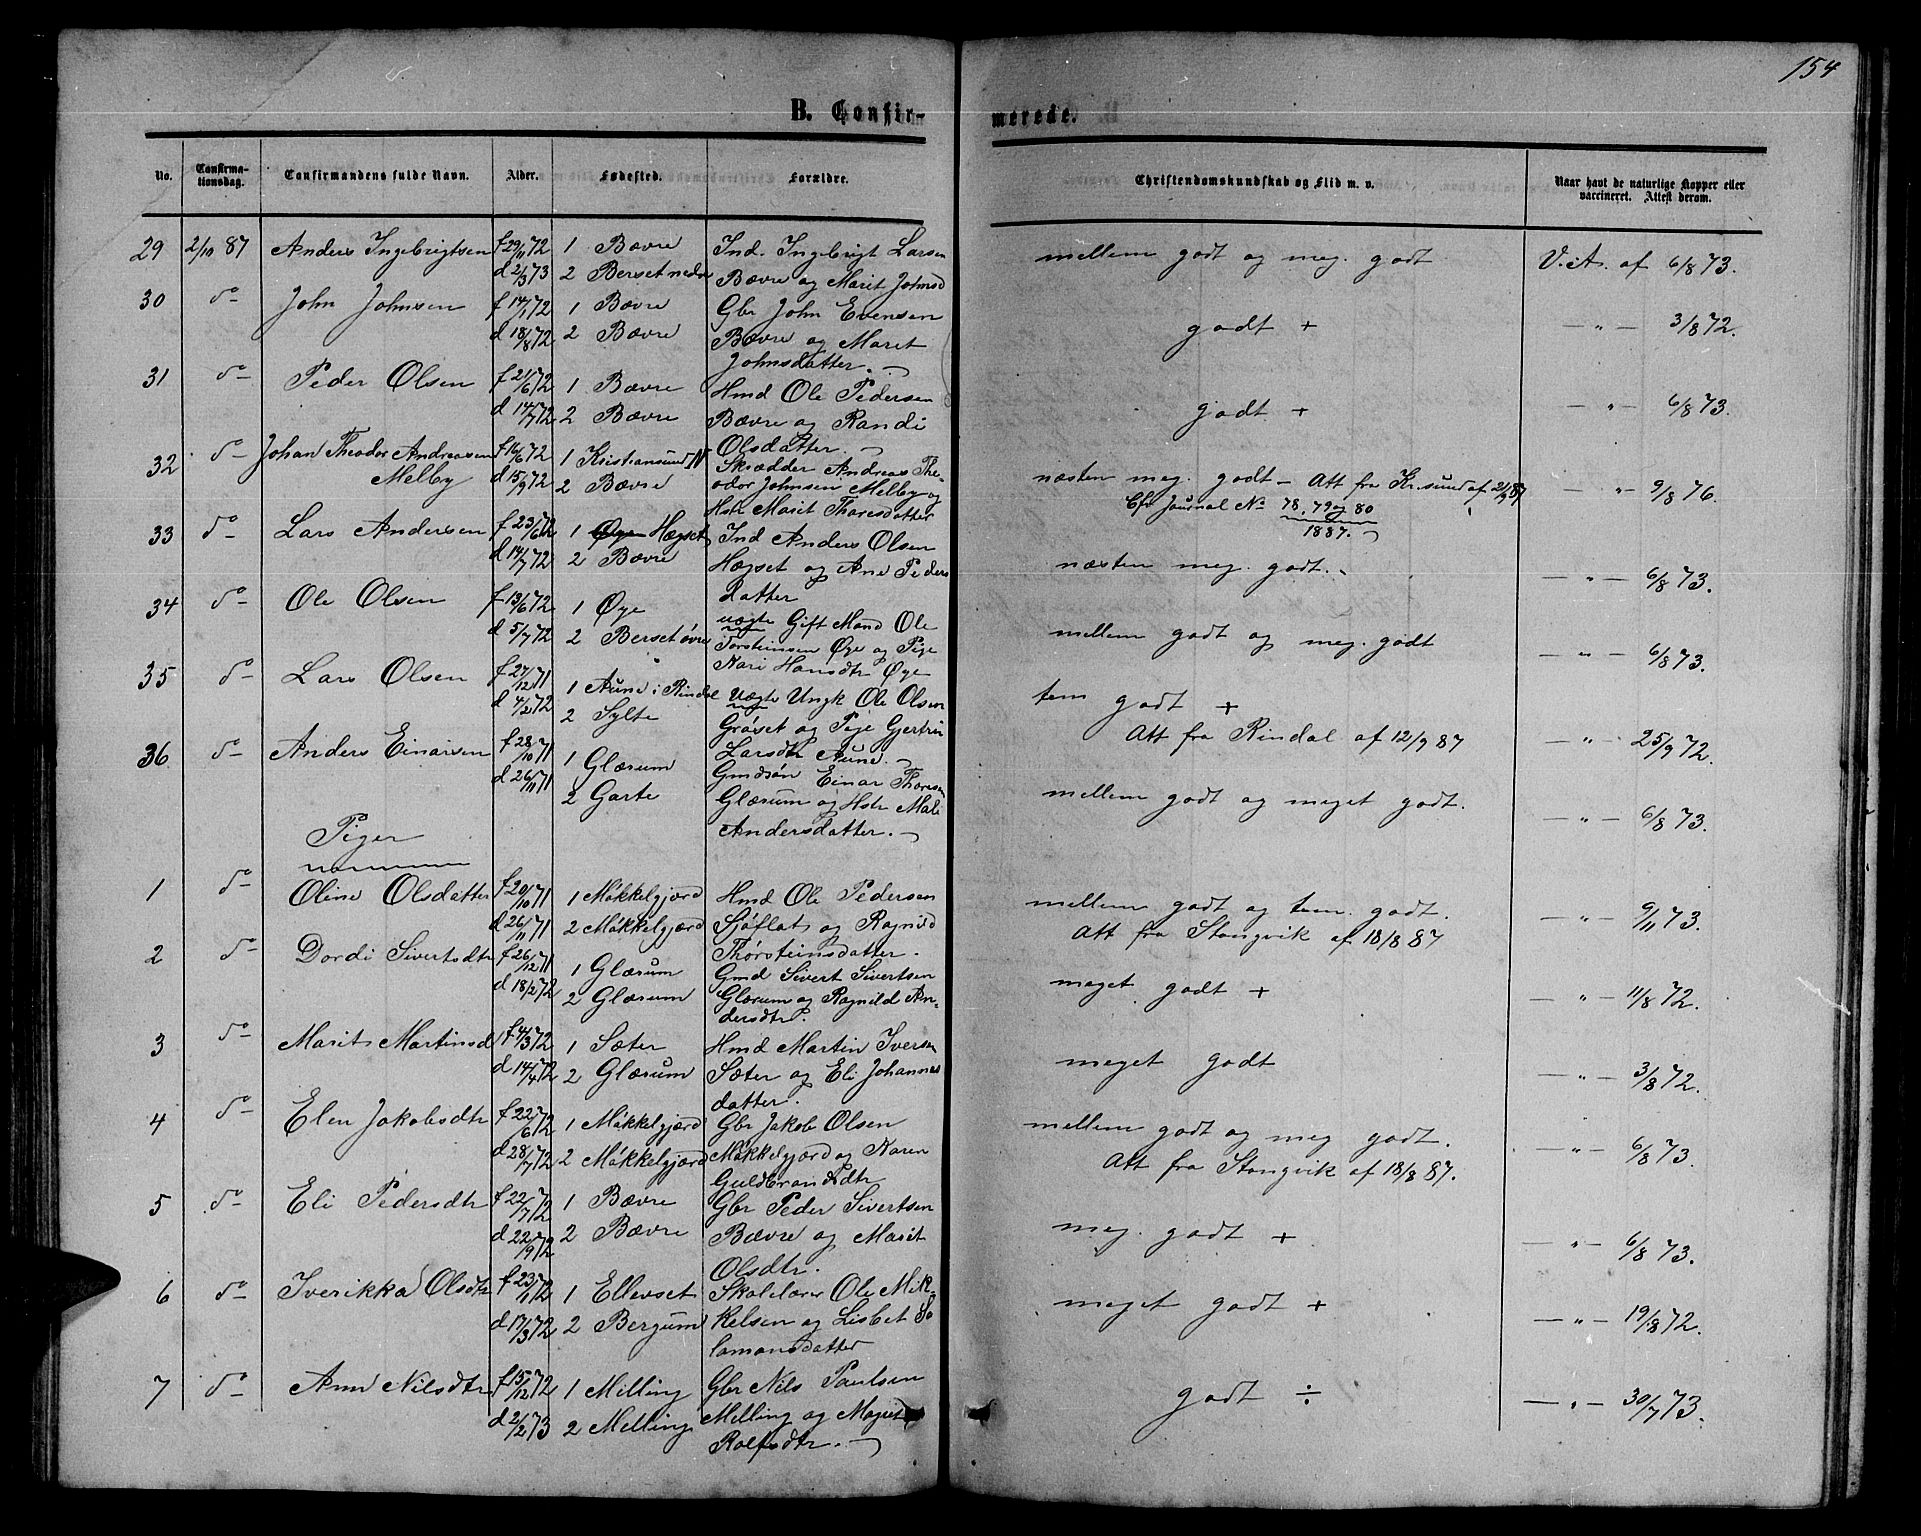 154
B. Confir-
merede.
No.
Confirma-
tionsdag.
Confirmandens fulde Navn.
Alder.
Fødested.
Forældre.
Christendomskundskab og Flid m. v.
Naar havt de naturlige Kopper eller
vaccineret. Attest derom.
29 2/10 87 Anders Ingebrigtsen f 29/11 72 1 Bævre Ind. Ingebrigt Larsen mellem godt og meg. godt V.A. af 6/8 73.
d 2/3 73 2 Berset nedre Bævre og Marit Johnsd
30 do John Johnsen f 14/1 72 1 Bævre Gbr John Evensen godt + — " — 3/8 72.
d 18/8 72 2 Bævre Bævre og Marit
Johnsdatter.
31 do Peder Olsen f 21/6 72 1 Bævre Hmd Ole Pedersen godt + — " — 6/8 73.
d 14/7 72 2 Bævre Bævre og Randi
Olsdatter.
32 do Johan Theodor Andreasen f 16/6 72 1 Kristiansund N Skrædder Andreas The- næsten meg. godt – Att fra Kr.sund af 21/9 87 — " — 9/8 76.
Melby d 15/9 72 2 Bævre odor Johnsen Melby og Cfr Journal No 78, 79 og 80
Hstr Marit Thoresdatter 1887.
33 do Lars Andersen f 23/6 72 1 Øye Hægset Ind Anders Olsen næsten meg. godt. — " — 6/8 73.
d 14/7 72 2 Bævre Hægset og Ane Peders
datter
34 do Ole Olsen f 13/6 72 1 Øye uægte Gift Mand Ole mellem godt og meg. godt — " — 6/8 73.
d 5/7 72 2 Berset øvre Torsteinssen Øye og Pige
Kari Hansdtr Øye
35 do Lars Olsen f 27/12 71 1 Aune i Rindal Uægte Ungk Ole Olsen tem godt + — " — 25/9 72.
d 4/2 72 2 Sylte Grøset og Pige Gjertrú Att fra Rindal af 12/9 87
Larsdtr Aune.
36 do Anders Einarsen f 28/10 71 1 Glærum Gmdsøn Einar Thoresen mellem godt og meget godt. — " — 6/8 73.
d 26/11 71 2 Garte Glærum og Hstr Mali
Andersdatter.
Piger
1 do Oline Olsdatter f 20/10 71 1 Møkkelgjærd Hmd Ole Pedersen mellem godt og tem. godt. — " — 9/11 73.
d 26/11 71 2 Møkkelgjærd Sjøflat og Ragnild Att fra Stangvik af 18/8 87
Thorsteinsdatter.
2 do Dordi Sivertsdtr f 26/12 71 1 Glærum Gmd Sivert Sivertsen meget godt + — " — 11/8 72.
d 18/2 72 2 Glærum Glærum og Ragnild An-
dersdtr.
3 do Marit Martinsd f 4/3 72 1 Sæter Hmd Martin Iversen meget godt — " — 3/8 72.
d 14/4 72 2 Glærum Sæter og Eli Johannes
datter.
4 do Elen Jakobsdtr f 22/6 72 1 Møkkelgjærd Gbr Jakob Olsen mellem godt og meg godt. — " — 6/8 73.
d 28/7 72 2 Møkkelgjærd Møkkelgjærd og Karen Att fra Stangvik af 18/8 87.
Guldbrandsdtr
5 do Eli Pedersdtr f 22/7 72 1 Bævre Gbr Peder Sivertsen meg. godt + — " — 6/8 73.
d 22/9 72 2 Bævre Bævre og Marit
Olsdtr.
6 do Iverikka Olsdtr f 23/1 72 1 Ellevset Skolelærer Ole Mik- meget godt + — " — 19/8 72.
d 17/3 72 2 Bergum kelsen og Lisbet Sa
lamonsdatter
7 do Ane Nilsdtr f 15/12 72 1 Melling Gbr Nils Paulsen godt ÷ — " — 30/7 73.
d 2/2 73 2 Melling Melling og Magrit
Rolfsdtr.